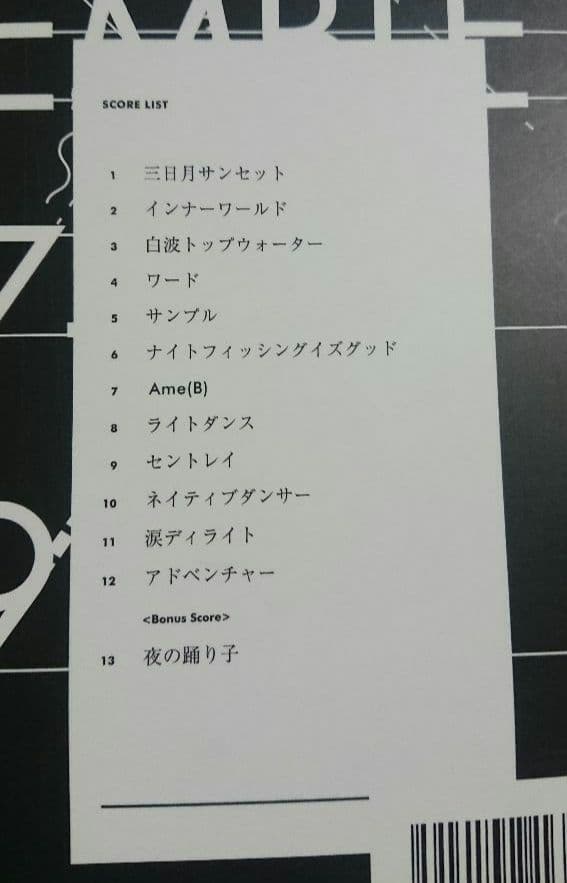 SCORE LIST
1 三日月サンセット
2 インナーワールド
3 白波トップウォーター
4 ワード
5 サンプル
6 ナイトフィッシングイズグッド
7 Ame(B)
8 ライトダンス
9 セントレイ
10 ネイティブダンサー
11 涙ディライト
12 アドベンチャー
<Bonus Score>
13 夜の踊り子